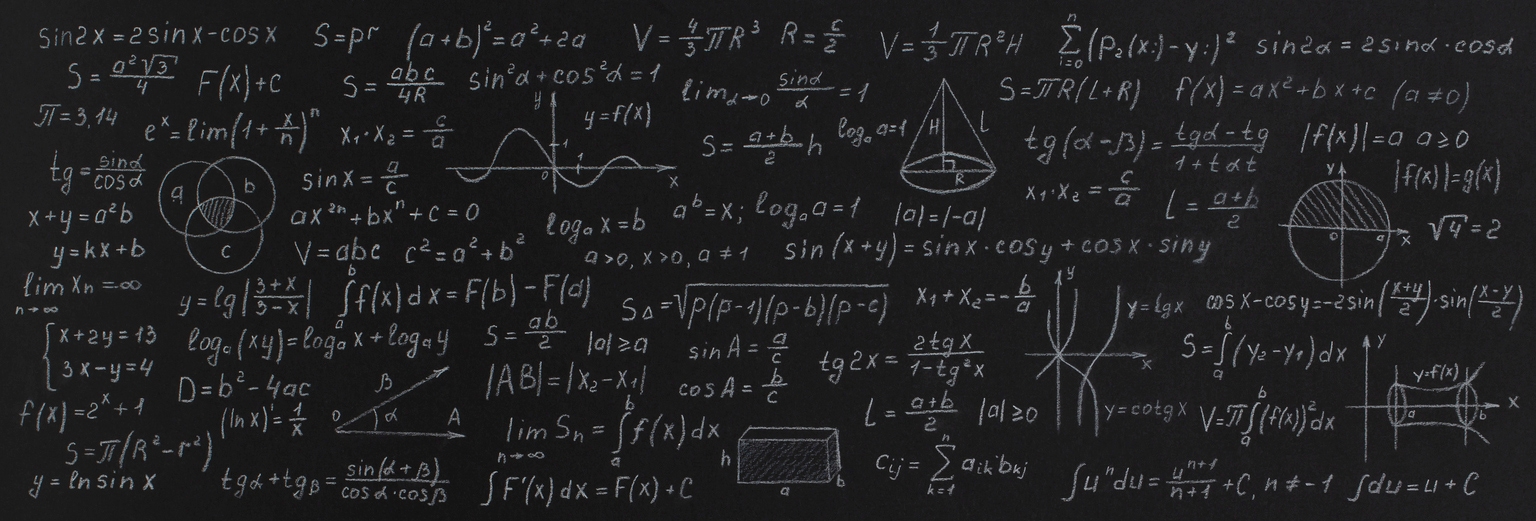 sin2x = 2sinx-cosx
S=pr
(a+b)²=a²+2a
V = 4/3 πR³
R = c/2
V = 1/3 πR²H
n Σ i=0 (P₂(xᵢ)-yᵢ)²
sin2α = 2sinα·cosα
S = a²√3/4
F(x)+C
S = abc/4R
sin²α+cos²α=1
lim α→0 sinα/α = 1
S=πR(L+R)
f(x)=ax²+bx+c (a≠0)
π=3,14
eˣ=lim(1+x/n)ⁿ
x₁·x₂ = c/a
y
y=f(x)
1
1
0
x
S = a+b/2 h
logₐ a=1
H
l
R
tg(α-β) = tgα-tg/1+tαt
|f(x)|=a a≥0
tg = sinα/cosα
a
b
c
sinx = a/c
x₁·x₂ = c/a
L = a+b/2
y
0
a
x
|f(x)|=g(x)
x+y=a²b
ax²ⁿ+bxⁿ+c=0
logₐ x=b
aᵇ=x; logₐ a=1
|a|=|-a|
√4=2
y=kx+b
V=abc
c²=a²+b²
a>0, x>0, a≠1
sin(x+y)=sinx·cosy+cosx·siny
lim n→∞ xₙ=-∞
y=lg|3+x/3-x|
b ∫ a f(x)dx=F(b)-F(a)
S△=√p(p-1)(p-b)(p-c)
x₁+x₂=-b/a
y
y=lgx
x
y=cotgx
cosx-cosy=-2sin(x+y/2)·sin(x-y/2)
{x+2y=13
3x-y=4
logₐ(xy)=logₐx+logₐy
S = ab/2
|a|≥a
sinA = a/c
tg2x = 2tgx/1-tg²x
S= b ∫ a (y₂-y₁)dx
y
y=f(x)
a
b
x
f(x)=2ˣ+1
D=b²-4ac
β
0
α
A
|AB|=|x₂-x₁|
cosA = b/c
(lnx)'=1/x
L = a+b/2
|a|≥0
V=π b ∫ a (f(x))²dx
S=π(R²-r²)
lim n→∞ Sₙ = b ∫ a f(x)dx
h
a
b
y=lnsinx
tgα+tgβ = sin(α+β)/cosα·cosβ
∫F'(x)dx=F(x)+C
cᵢⱼ = n Σ k=1 aᵢₖbₖⱼ
∫uⁿdu=uⁿ⁺¹/n+1 +C, n≠-1
∫du=u+C